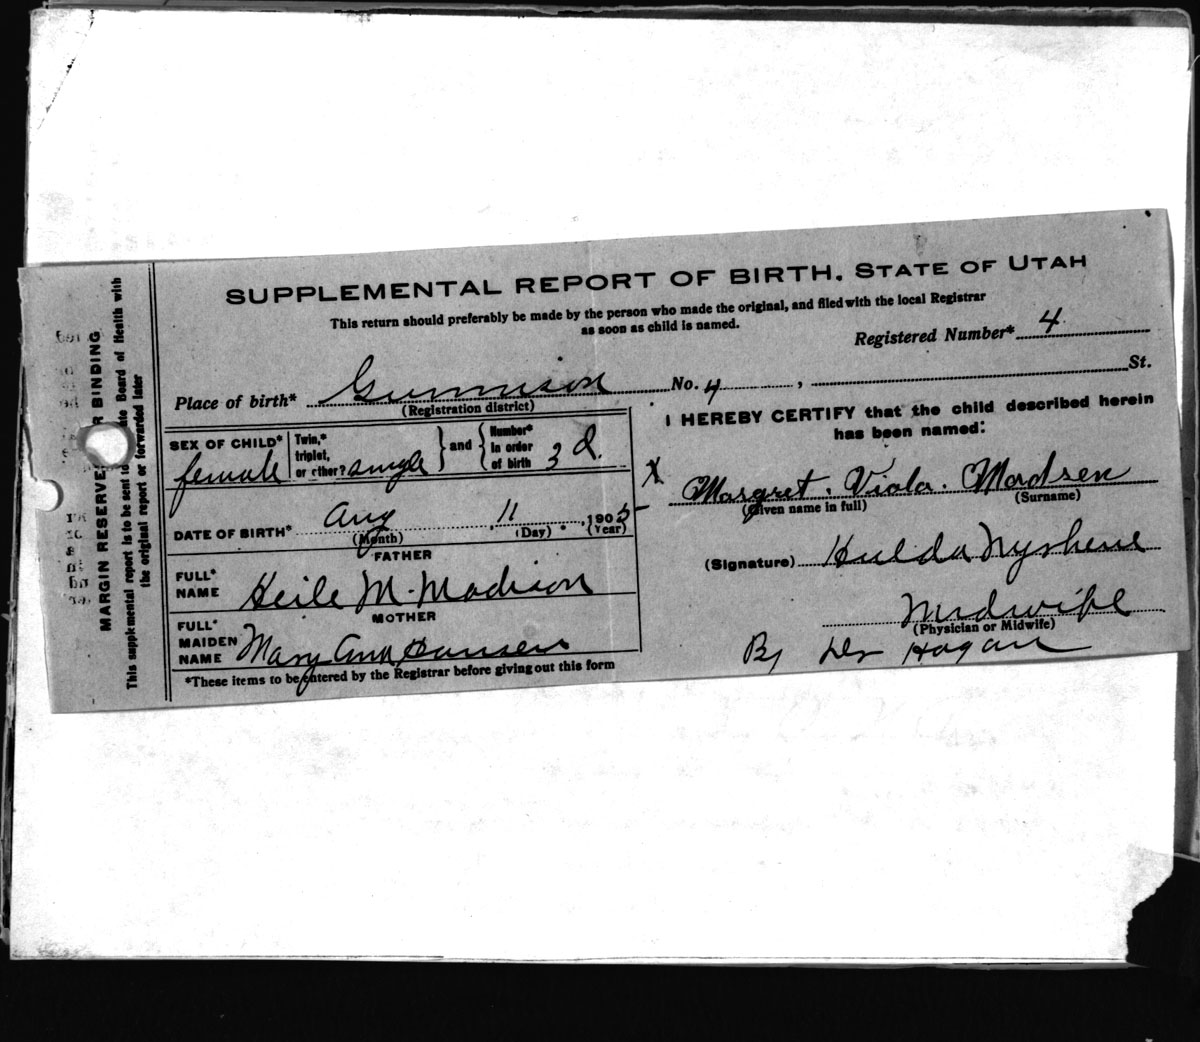 MARGIN RESERVED FOR BINDING
This supplemental report is to be sent to State Board of Health with
the original report or forwarded later
SUPPLEMENTAL REPORT OF BIRTH. STATE OF UTAH
This return should preferably be made by the person who made the original, and filed with the local Registrar
as soon as child is named.
Registered Number* 4
Place of birth* Gunnison No. 4 , St.
(Registration district)
SEX OF CHILD* female
Twin,*
triplet,
or other? single
and
Number*
in order
of birth 3d.
DATE OF BIRTH* Aug 11, 1905
(Month) (Day) (Year)
FATHER
FULL*
NAME M. Madison
MOTHER
FULL*
MAIDEN
NAME Mary Ann Hansen
*These items to be entered by the Registrar before giving out this form
I HEREBY CERTIFY that the child described herein
has been named:
X Margret. Viola. Madsen
(Given name in full) (Surname)
(Signature) Hulda
Midwife
(Physician or Midwife)
By Hagan